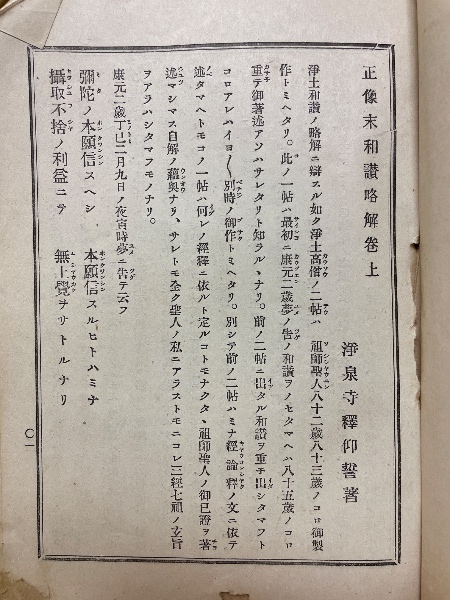 正像末和讃略解卷上
淨泉寺釋仰誓著
淨土和讃ノ略解ニ辯スル如ク淨土高僧ノ二帖ハ 祖師聖人八十二歲八十三歲ノコロ御製
作トミヘタリ。此ノ一帖ハ最初ニ康元二歲夢ノ告ノ和讃ヲノセタマヘハ八十五歲ノコロ
重テ御著述アソハサレタリト知ラルヽナリ。前ノ二帖ニ出タル和讃ヲ重テ出シタマフト
コロアレハイヨ〱別時ノ御作トミヘタリ。別シテ前ノ二帖ハミナ經論釋ノ文ニ依テ
述タマヘトモコノ一帖ハ何レノ經釋ニ依ルト定ルコトモナクタヽ祖師聖人ノ御已證ヲ著
述マシマス自解ノ蘊奥ナリ、サレトモ全ク聖人ノ私ニアラストモニコレ三經七祖ノ玄旨
ヲアラハシタマフモノナリ。
康元二歲丁巳二月九日ノ夜寅時夢ニ告テ云ク
彌陀ノ本願信スヘシ 本願信スルヒトハミナ
攝取不捨ノ利益ニテ 無上覺ヲサトルナリ
〇一